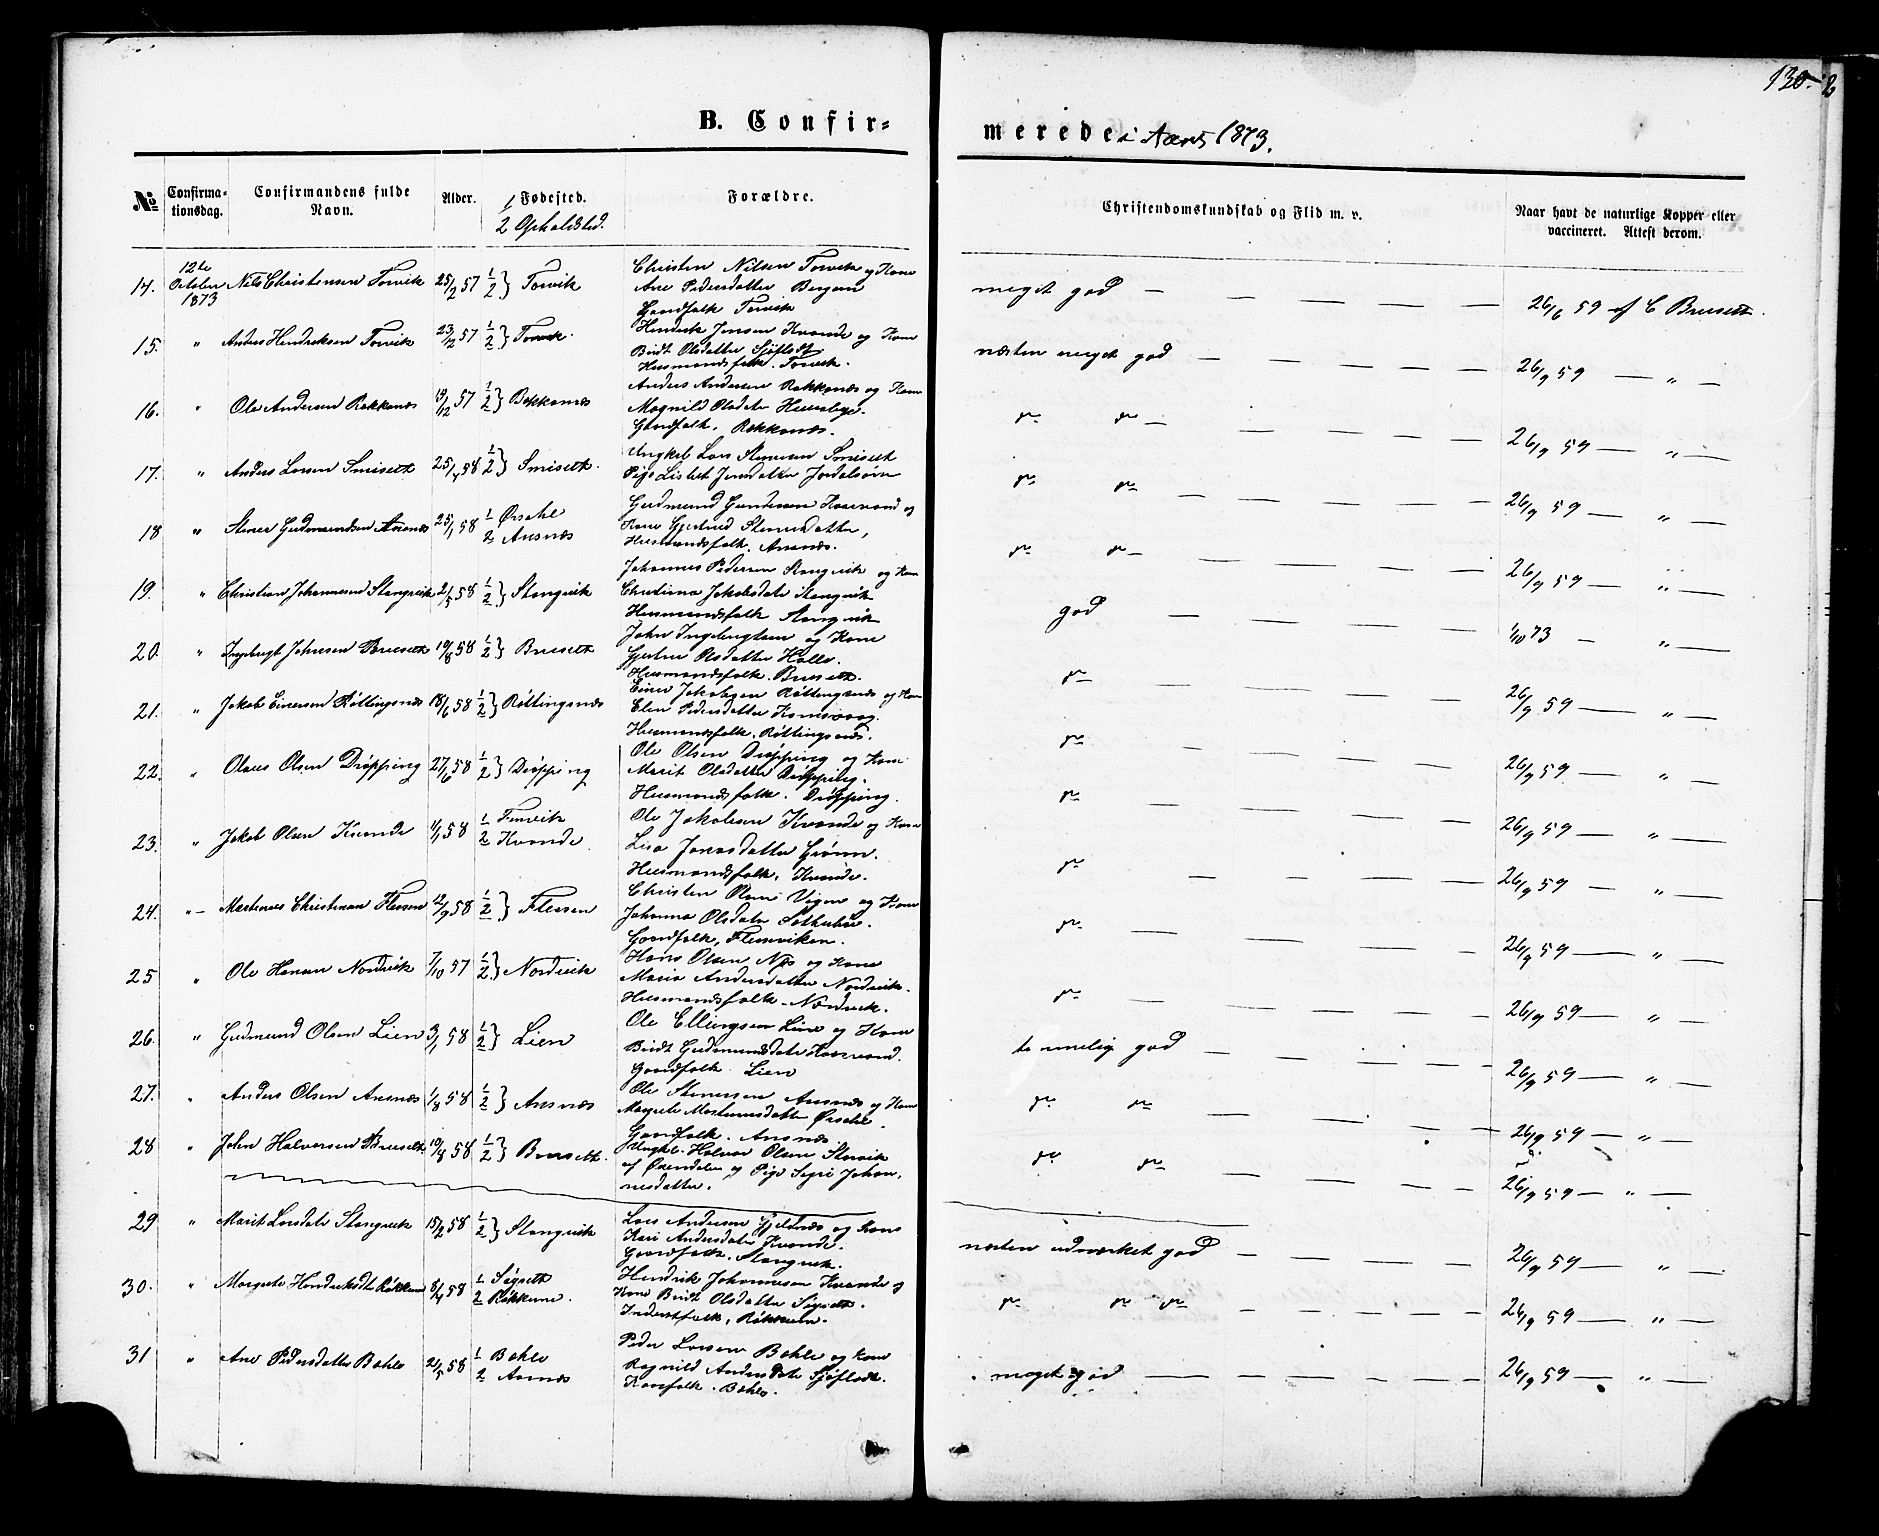 130.
B. Confirmerede i Aaret 1873.
No
Confirmationsdag.
Confirmandens fulde Navn.
Alder.
1 Fødested.
2 Opholdsted.
Forældre.
Christendomskundskab og Flid m. v.
Naar havt de naturlige Kopper eller vaccineret. Attest derom.
14. 12te October 1873 Nils Christensen Torvik 25/2 57 1/2 } Torvik
Christen Nilsen Torvik og Kone
Ane Pedersdatter Bergem
Gaardfolk Torvik
meget god — 26/6 59 af C Bruset.
15. " Anders Hendriksen Torvik 23/2 57 1/2 } Torvik.
Hendrik Jensen Kvande og Kone
Birdt Olsdatter Sjøflodt
Husmandsfolk. Torvik.
næsten meget god — 26/9 59 — " —
16. " Ole Andersen Rakkenæs 19/12 57 1/2 } Bakkenæs
Anders Andersen Rakkenæs og Kone
Magnild Olsdatr Husebye.
Gaardfolk. Rakkenæs.
dº dº — 26/9 59 — " —
17. " Anders Larsen Smiseth 25/4 58 1/2 } Smiseth.
Ungkel Lars Stenersen Smiseth
Pige Lisbet Jensdatter Jordalsøren
dº dº — 26/9 59 — " —
18 " Stener Gudmundsen Aasnæs 25/1 58 1 Ørsahl 2 Aasnæs
Gudmund Gundersen Kaarvand og
Kone Gjertrud Stenersdatter,
Husmandsfolk. Aasnæs.
dº dº — 26/9 59 — " —
19. " Christian Johannesen Stangvik 2/5 58 1/2 } Stangvik
Johannes Pedersen Stangvik og Kone
Christiana Jakobsdatr Stangvik
Husmandsfolk Stangvik
god — 1/10 73 — " —
20. " Ingebrigt Johnsen Bruseth 19/8 58 1/2 } Bruseth
John Ingebrigtsen og Kone
Gjertru Olsdatter Halle.
Husmandsfolk. Bruseth.
dº — 26/9 59 — " —
21. " Jakob Einersen Røttingsnæs 18/6 58 1/2 } Røttingsnæs
Einer Jakobsen Røttingsnæs og Kone
Elen Pedersdatter
Husmandsfolk. Røttingsnæs.
dº — 26/9 59 — " —
22. " Olaus Olsen Drøpping 27/6 58 1/2 } Drøpping
Ole Olsen Drøpping og Kone
Marit Olsdatter Drøpping.
Husmandsfolk. Drøpping.
dº — 26/9 59 — " —
23. " Jakob Olsen Kvande 4/1 58 1 2 Kvande.
Ole Jakobsen Kvande og Kone
Lisa Jonasdatter Grønn.
Husmandsfolk, Kvande.
dº — 26/9 59 — " —
24. " Martinus Christensen Flessen 12/9 58 1/2 } Flessen
Christen Olsen Vigen og Kone
Johanna Olsdatr
Gaardfolk, Flessviken.
dº — 26/9 59 — " —
25 " Ole Hansen Nordvik 7/10 57 1/2 } Nordvik
Hans Olsen Næs og Kone
Maria Andersdatter Nordvik.
Husmandsfolk. Nordvik.
dº — 26/9 59 — " —
26. " Gudmund Olsen Lien 3/1 58 1/2 } Lien
Ole Ellingsen Lien og Kone
Birdt Gudmundsdatr Kaarvand.
Gaardfolk. Lien
temmelig god — 26/9 59 — " —
27. " Anders Olsen Aasnæs 1/8 58 1/2 } Aasnæs
Ole Stenersen Aasnæs og Kone
Margrete Mortensdatter Ørsahl.
Gaardfolk. Aasnæs.
dº dº — 26/9 59 — " —
28 " John Halvorsen Bruseth 19/8 58 1/2 } Bruseth.
Ungkel. Halvor Olsen Storvik
af Øxendalen og Pige Sigri Johannesdatter.
dº dº — 26/9 59 — " —
29 " Marit Larsdatr Stangvik 15/2 58 1/2 } Stangvik
Lars Andersen Gjeldnæs og Kone
Kari Andersdatr Kvande.
Gaardfolk. Stangvik.
næsten udmærket god — 26/9 59 — " —
30. " Margrete Hendriksdt Røkkum 8/4 58 1 Sogseth 2 Røkkum.
Hendrik Johannesen Kvande og
Kone Birdt Olsdatter Sogseth.
Inderstfolk, Røkkum.
dº dº dº — 26/9 59 — " —
31 " Ane Pedersdatter Bæhle 21/5 58 1 Bæhle 2 Aasnæs
Peder Larsen Bæhle og Kone
Ragnild Andersdatr Sjøflodt.
Kaarfolk. Bæhle.
meget god — 26/9 59 — " —